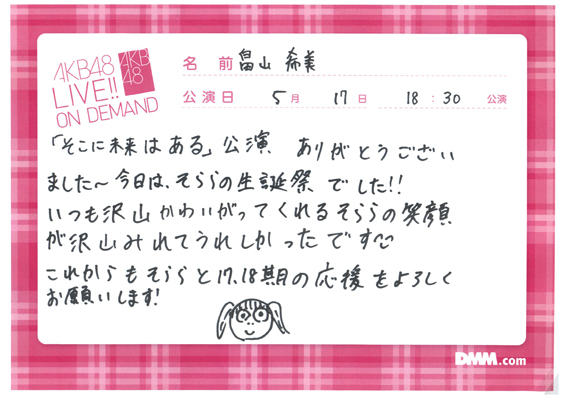 AKB48
LIVE!!
ON DEMAND
AKB
48
名 前 畠山 希美
公演日 5月 17日 18:30 公演
「そこに未来はある」公演 ありがとうござい
ました〜今日は、そららの生誕祭でした!!
いつも沢山かわいがってくれるそららの笑顔
が沢山みれてうれしかったです
これからもそらると17,18期の応援をよろしく
お願いします!
DMM.com